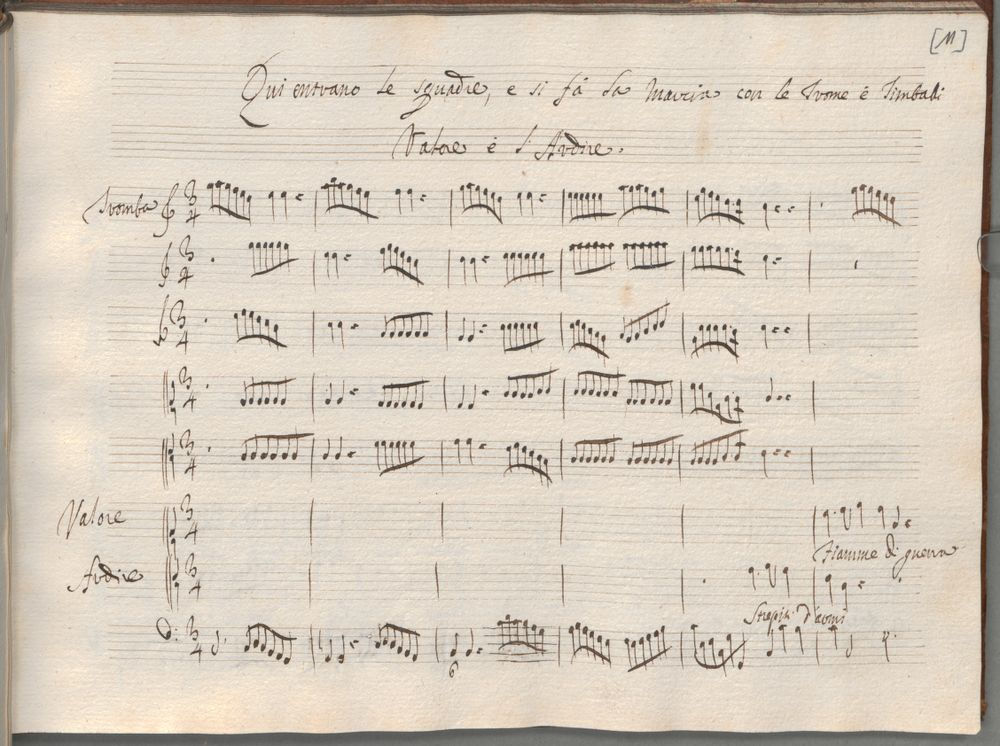 [11]
Qui entrano le squadre, e si fà la Marcia con le Trome è Timbali
Valore è l'Ardire.
Tromba
Valore
Fiamme di guerra
Ardire
Strepiti d'armi
6